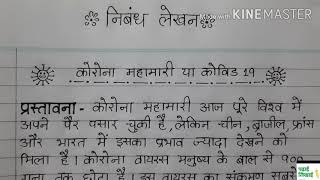 Made with KINEMASTER
निबंध लेखन
कोरोना महामारी या कोविड 19
प्रस्तावना - कोरोना महामारी आज पूरे विश्व में
अपने पैर पसार चुकी है, लेकिन चीन, ब्राजील, फ्रांस
और भारत में इसका प्रभाव ज्यादा देखने को
मिला है। कोरोना वायरस मनुष्य के बाल से १००
गुना तक छोटा है। इस वायरस का संक्रमण सबसे